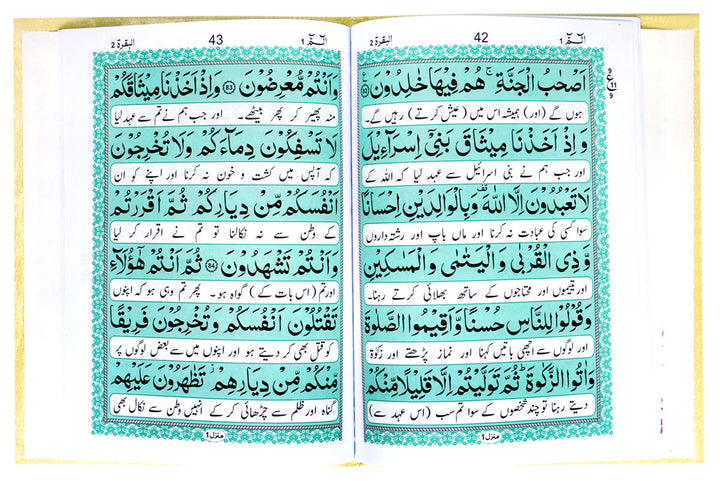 البقرة ٢
42
الٓمّٓ 1
اَصْحٰبُ الْجَنَّةِ ۚ هُمْ فِيْهَا خٰلِدُوْنَ
ہوں گے (اور) ہمیشہ اس میں (عیش کرتے) رہیں گے۔
وَ اِذْ اَخَذْنَا مِيْثَاقَ بَنِيْٓ اِسْرَآءِيْلَ
اور جب ہم نے بنی اسرائیل سے عہد لیا کہ اللہ کے
لَا تَعْبُدُوْنَ اِلَّا اللّٰهَ ۫ وَ بِالْوَالِدَيْنِ اِحْسَانًا
سوا کسی کی عبادت نہ کرنا اور ماں باپ اور رشتہ داروں
وَّ ذِي الْقُرْبٰى وَ الْيَتٰمٰى وَ الْمَسٰكِيْنِ
اور یتیموں اور محتاجوں کے ساتھ بھلائی کرتے رہنا۔
وَ قُوْلُوْا لِلنَّاسِ حُسْنًا وَّ اَقِيْمُوا الصَّلٰوةَ
اور لوگوں سے اچھی باتیں کہنا اور نماز پڑھتے اور زکوٰة
وَ اٰتُوا الزَّكٰوةَ ؕ ثُمَّ تَوَلَّيْتُمْ اِلَّا قَلِيْلًا مِّنْكُمْ
دیتے رہنا تو چند شخصوں کے سوا تم سب (اس عہد سے)
منزل 1
البقرة ٢
43
الٓمّٓ 1
وَ اَنْتُمْ مُّعْرِضُوْنَ 83 وَ اِذْ اَخَذْنَا مِيْثَاقَكُمْ
منہ پھیر کر پھر بیٹھے۔ اور جب ہم نے تم سے عہد لیا
لَا تَسْفِكُوْنَ دِمَآءَكُمْ وَلَا تُخْرِجُوْنَ
کہ آپس میں کشت و خون نہ کرنا اور اپنے کو ان
اَنْفُسَكُمْ مِّنْ دِيَارِكُمْ ثُمَّ اَقْرَرْتُمْ
کے وطن سے نہ نکالنا تو تم نے اقرار کر لیا
وَ اَنْتُمْ تَشْهَدُوْنَ 84 ثُمَّ اَنْتُمْ هٰٓؤُلَآءِ
اور تم (اس بات کے) گواہ ہو۔ پھر تم وہی ہو کہ اپنوں
تَقْتُلُوْنَ اَنْفُسَكُمْ وَ تُخْرِجُوْنَ فَرِيْقًا
کو قتل بھی کر دیتے ہو اور اپنوں میں سے بعض لوگوں پر
مِّنْكُمْ مِّنْ دِيَارِهِمْ ۫ تَظٰهَرُوْنَ عَلَيْهِمْ
گناہ اور ظلم سے چڑھائی کر کے انہیں وطن سے نکال بھی
منزل 1